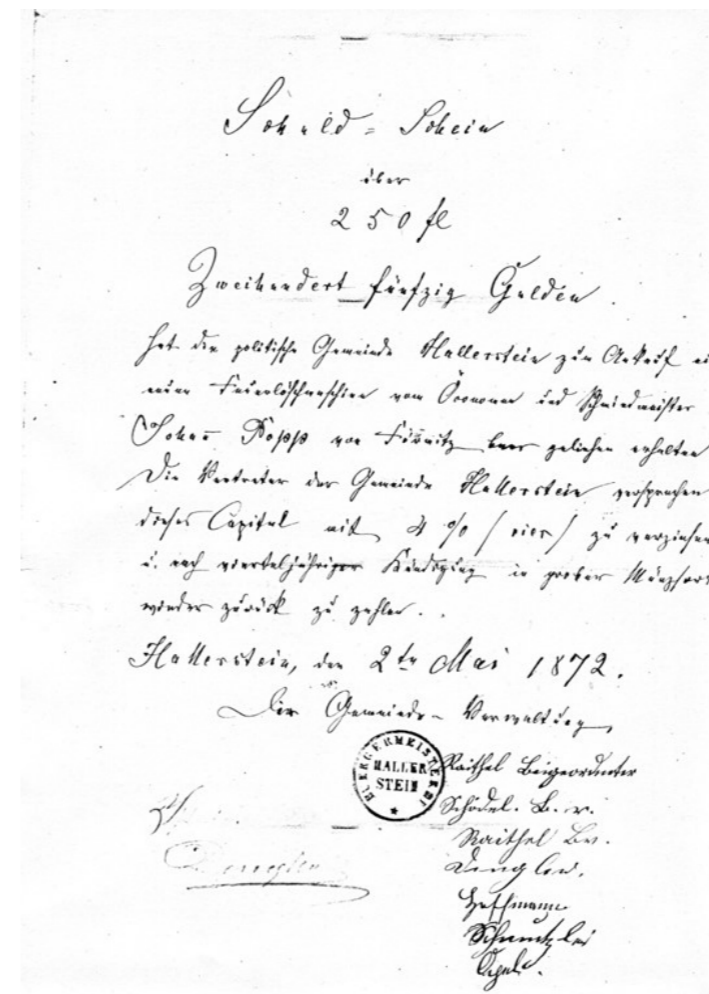 Schuld = Schein
über
250 fl
Zweihundert fünfzig Gulden
hat die politische Gemeinde Hallerstein zum Ankauf ei
neuen Feuerlöschmaschine vom Öconomen und Schmiedmeister
Johann Popp von Förmitz baar geliehen erhalten
Die Vertreter der Gemeinde Hallerstein versprechen
dieses Capital mit 4 % / vier / zu verzinsen
u. nach vierteljähriger Kündigung in grober Münzsort
wieder zurück zu zahlen.
Hallerstein, den 2ten Mai 1872.
Die Gemeinde-Verwaltung
BUERGERMEISTEREI
HALLER
STEIN
Raithel Beigeordneter
Schödel. B. v.
Raithel Bv.
Dengler.
Hoffmann